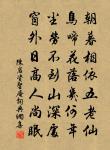 朝暮相依五老仙
鳥啼花落何年
塵勞不到山深處
窗外日高人尚眠
陳岩庵